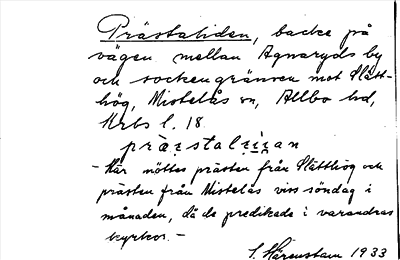 Prästaliden, backe på
vägen mellan Agnaryds by
och sockengränsen mot Slätt-
hög, Mistelås sn, Allbo hd,
Krbs l. 18.
præstaliḍan
- Här möttes prästen från Slätthög och
prästen från Mistelås viss söndag i
månaden, då de predikade i varandras
kyrkor. -
S. Härenstam 1933